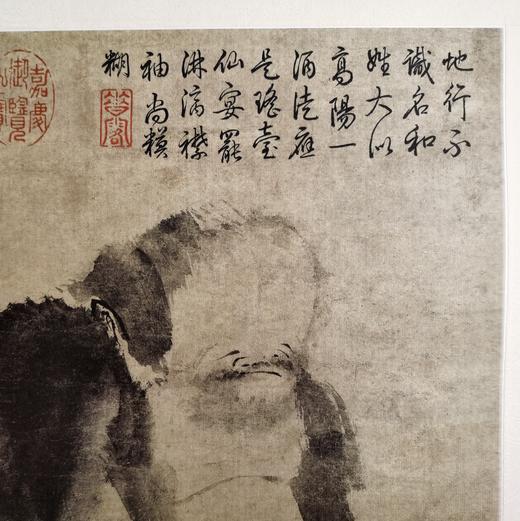 地行不
識名和
姓大似
高陽一
酒徒應
是瑤臺
仙宴罷
淋漓襟
袖尚糢
糊
嘉慶
御覽